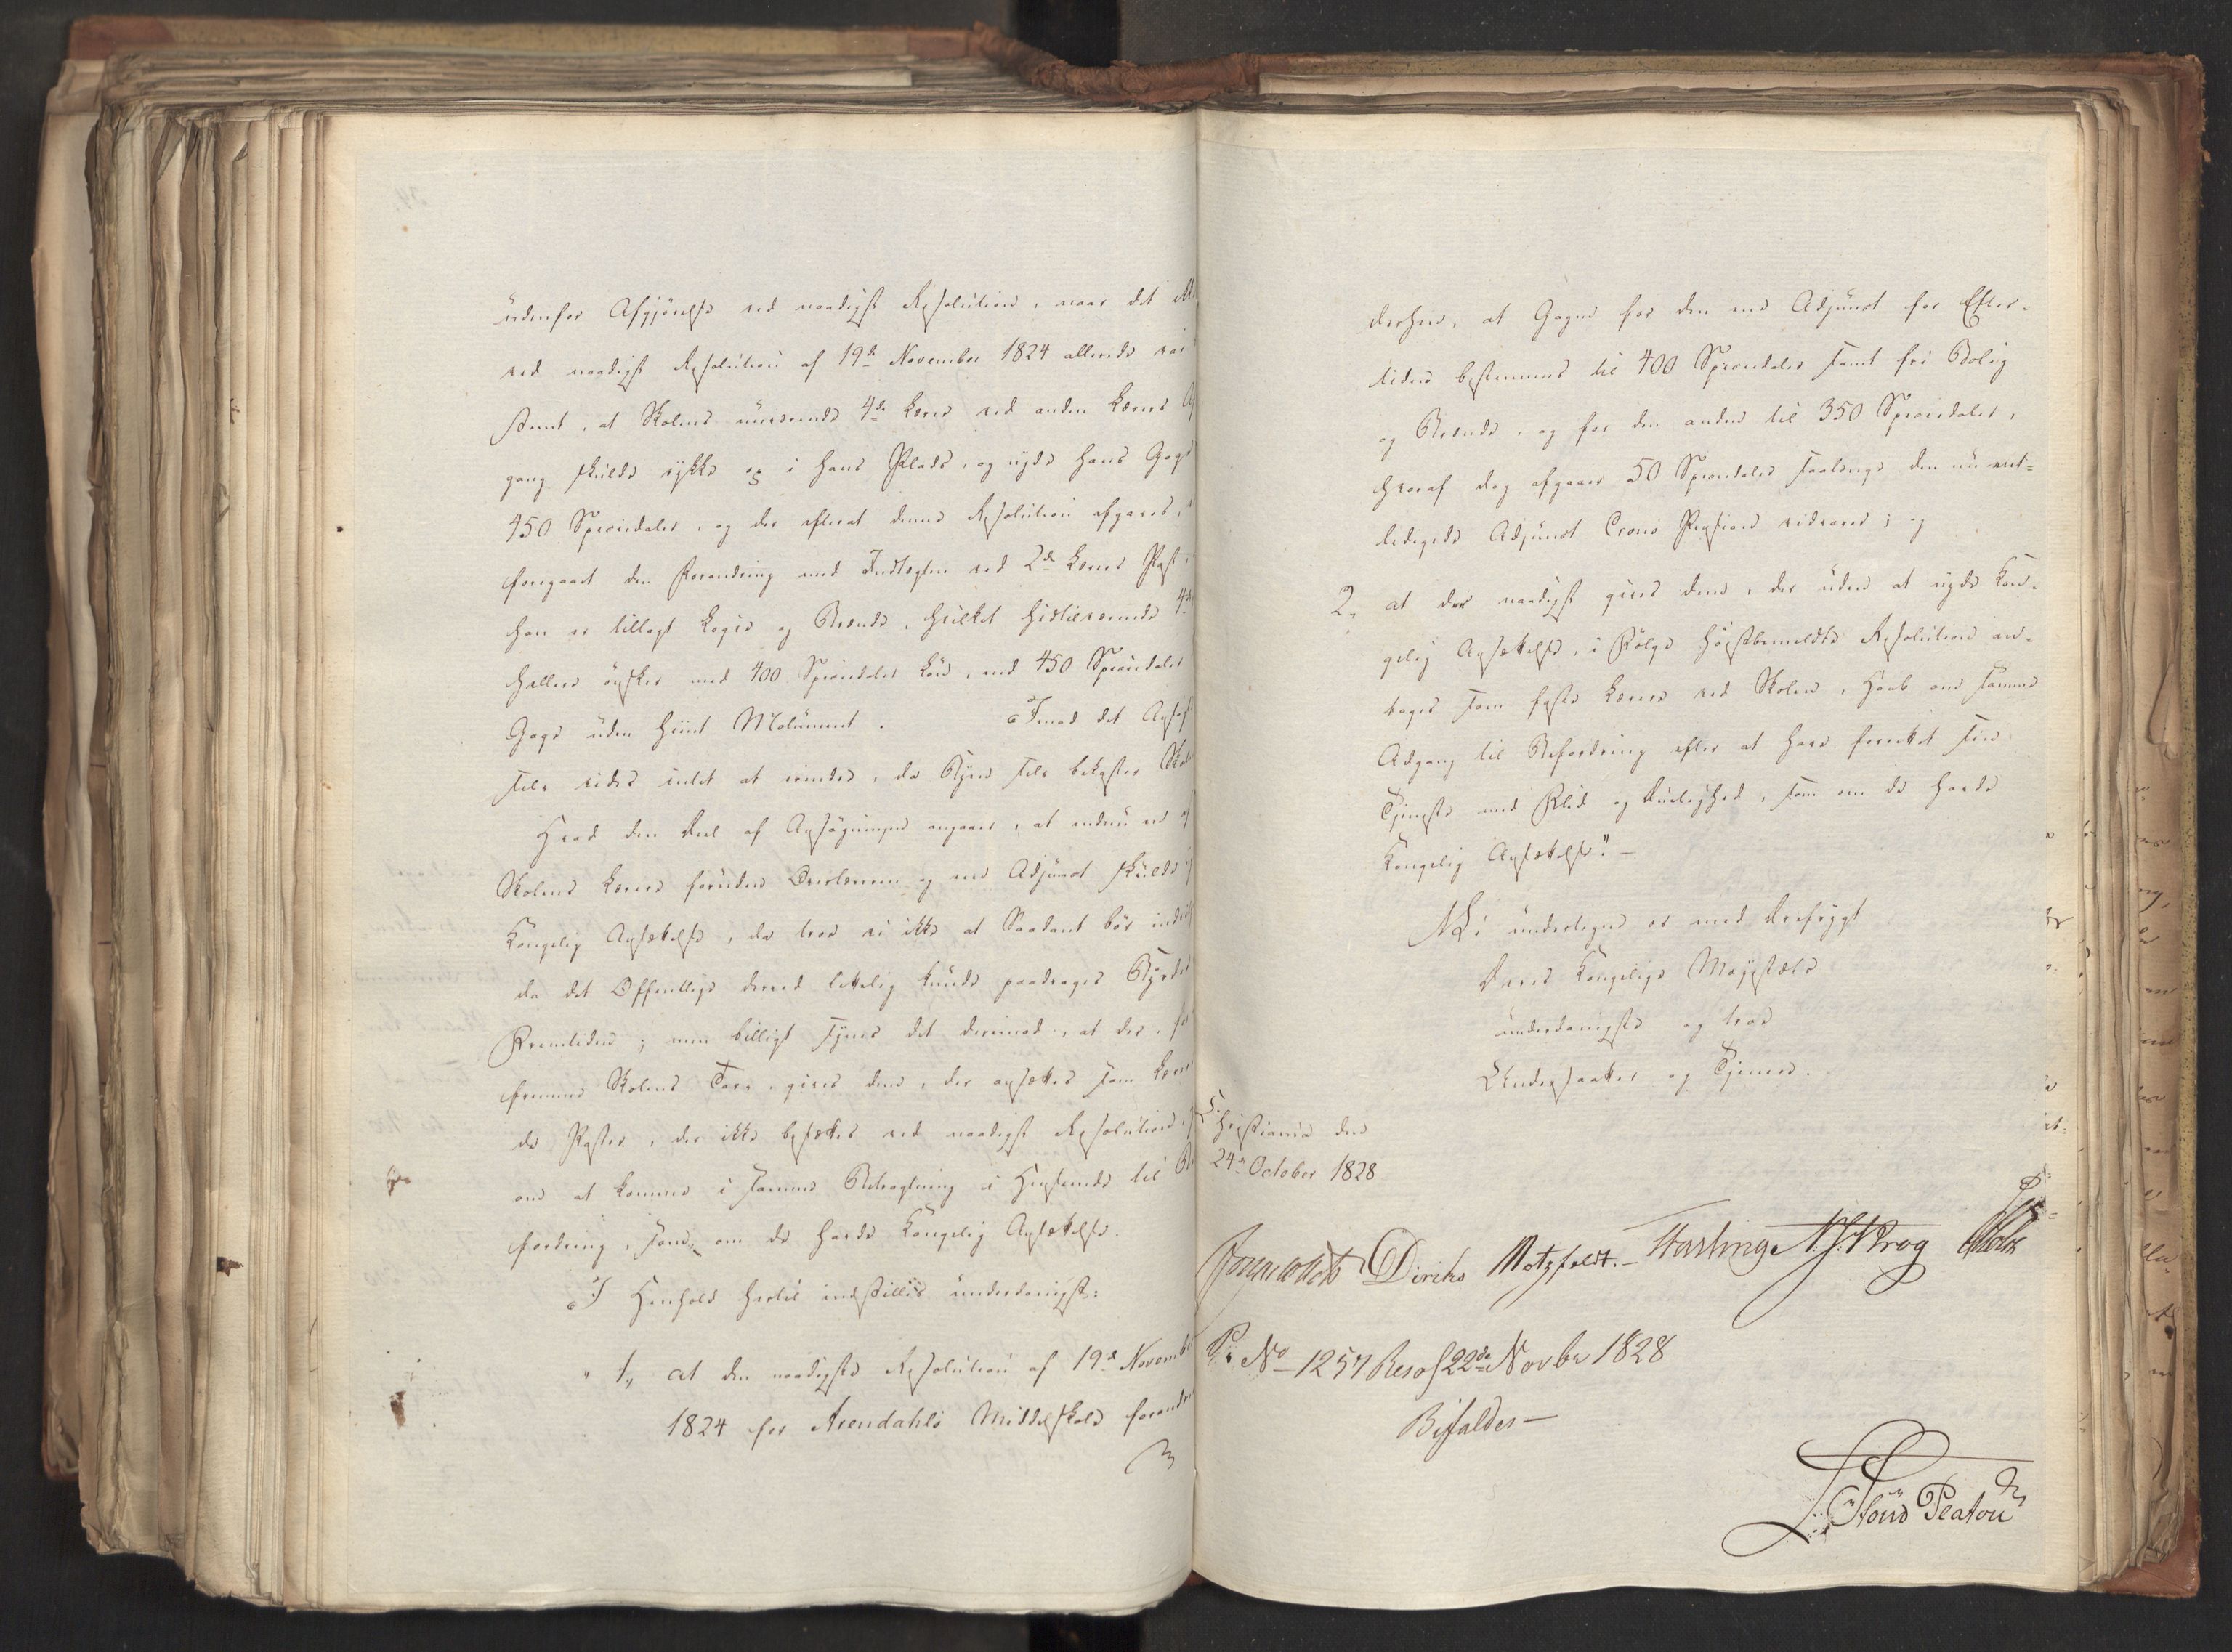 udenfor Afgjørelse ved naadigst Resolution, naar det
ved naadigst Resolution af 19de November 1824 allerede var
stemt, at Skolens nuværende 4de Lærer ved anden Lærers
gang skulde rykke op i hans Plads, og nyde hans Gage
450 Speciedaler, og der efterat denne Resolution afgaves,
foregaaet den Forandring med Indtægten ved 2den Lærer Post,
han er tillagt Logis og Brænde, hvilket hidtilværende 4de
hellere ønsker med 400 Speciedaler Løn, end 450 Speciedaler
Gage uden hiint Emolument. Imod det
selv vides intet at erindre, da Byen selv bekoster
Hvad den Deel af Ansøgningen angaaer, at endnu en af
Skolens Lærere foruden Overlæreren og een Adjunct skulde
Kongelig Ansættelse, da troe vi ikke at Saadant bør
da det Offentlige derved lettelig kunde paadrages Byrder
Fremtiden; men billigt synes det derimod, at der, for
fremme Skolens Tarv, gives dem, der ansættes som Lærere
de Poster, der ikke besættes ved naadigst Resolution,
om at komme i samme Betragtning i Henseende til
fordring, som om de havde Kongelig Ansættelse.
I Henhold hertil indstilles underdanigst:
" 1, at den naadigste Resolution af 19de November
1824 for Arendahls Middelskole
derhen, at Gagen for den ene Adjunct for Efter-
tiden bestemmes til 400 Speciedaler samt fri Bolig
og Brænde, og for den anden til 350 Speciedaler,
hvoraf dog afgaaer 50 Speciedaler saalænge den nu ent-
ledigede Adjunct Crons Pension vedvarer; og
2, at der naadigst gives dem, der uden at nyde Kon-
gelig Ansættelse, i Følge høistbemeldte Resolution an-
tages som faste Lærere ved Skolen, Haab om samme
Adgang til Befordring efter at have forrettet sin
Tjeneste med Flid og Duelighed, som om de havde
Kongelig Ansættelse". -
Vi undertegne os med Ærefrygt
Deres Kongelige Majestæts
underdanigste og troe
Undersaatter og Tjenere.
Christiania den
24de October 1828
Diriks Motzfeldt. - N. J. Krog
Pr. No 1257 Resol 22de Novbr 1828
Bifaldes -